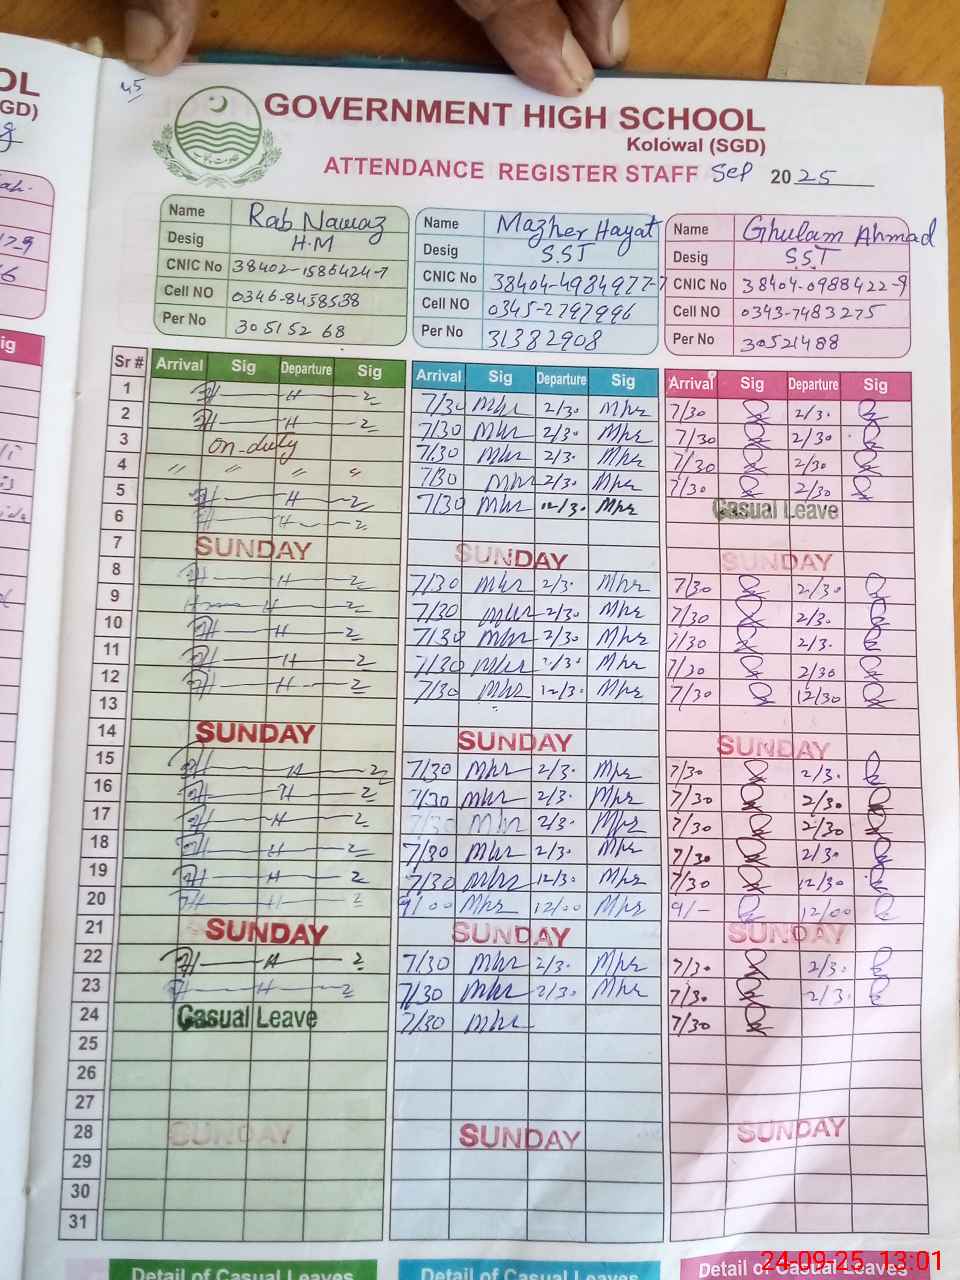 45
GOVERNMENT HIGH SCHOOL
Kolowal (SGD)
ATTENDANCE REGISTER STAFF Sep 2025
Name Rab Nawaz
Desig H.M
CNIC No 38402-1586424-7
Cell NO 0346-8458538
Per No 30515268
Name Mazher Hayat
Desig S.S.T
CNIC No 38404-4984977-7
Cell NO 0345-2797996
Per No 31382908
Name Ghulam Ahmad
Desig S.S.T
CNIC No 38404-0988422-9
Cell NO 0343-7483275
Per No 30521488
Sr # Arrival Sig Departure Sig Arrival Sig Departure Sig Arrival Sig Departure Sig
1 H 7/30 Mhr 2/30 Mhr 7/30 2/30
2 H 7/30 Mhr 2/30 Mhr 7/30 2/30
3 on-duty 7/30 Mhr 2/30 Mhr 7/30 2/30
4 " " " " 7/30 Mhr 2/30 Mhr 7/30 2/30
5 H 7/30 Mhr 12/30 Mhr Casual Leave
6 H
7 SUNDAY SUNDAY SUNDAY
8 H 7/30 Mhr 2/30 Mhr 7/30 2/30
9 H 7/30 Mhr 2/30 Mhr 7/30 2/30
10 H 7/30 Mhr 2/30 Mhr 7/30 2/30
11 H 7/30 Mhr 2/30 Mhr 7/30 2/30
12 H 7/30 Mhr 12/30 Mhr 7/30 12/30
13
14 SUNDAY SUNDAY SUNDAY
15 H 7/30 Mhr 2/30 Mhr 7/30 2/30
16 H 7/30 Mhr 2/30 Mhr 7/30 2/30
17 H 7/30 Mhr 2/30 Mhr 7/30 2/30
18 H 7/30 Mhr 2/30 Mhr 7/30 2/30
19 H 7/30 Mhr 12/30 Mhr 7/30 12/30
20 H 9/00 Mhr 12/00 Mhr 9/- 12/00
21 SUNDAY SUNDAY SUNDAY
22 H 7/30 Mhr 2/30 Mhr 7/30 2/30
23 H 7/30 Mhr 2/30 Mhr 7/30 2/30
24 Casual Leave 7/30 Mhr 7/30
25
26
27
28 SUNDAY SUNDAY SUNDAY
29
30
31
Detail of Casual Leaves Detail of Casual Leaves Detail of Casual Leaves
24-09-25 13:01